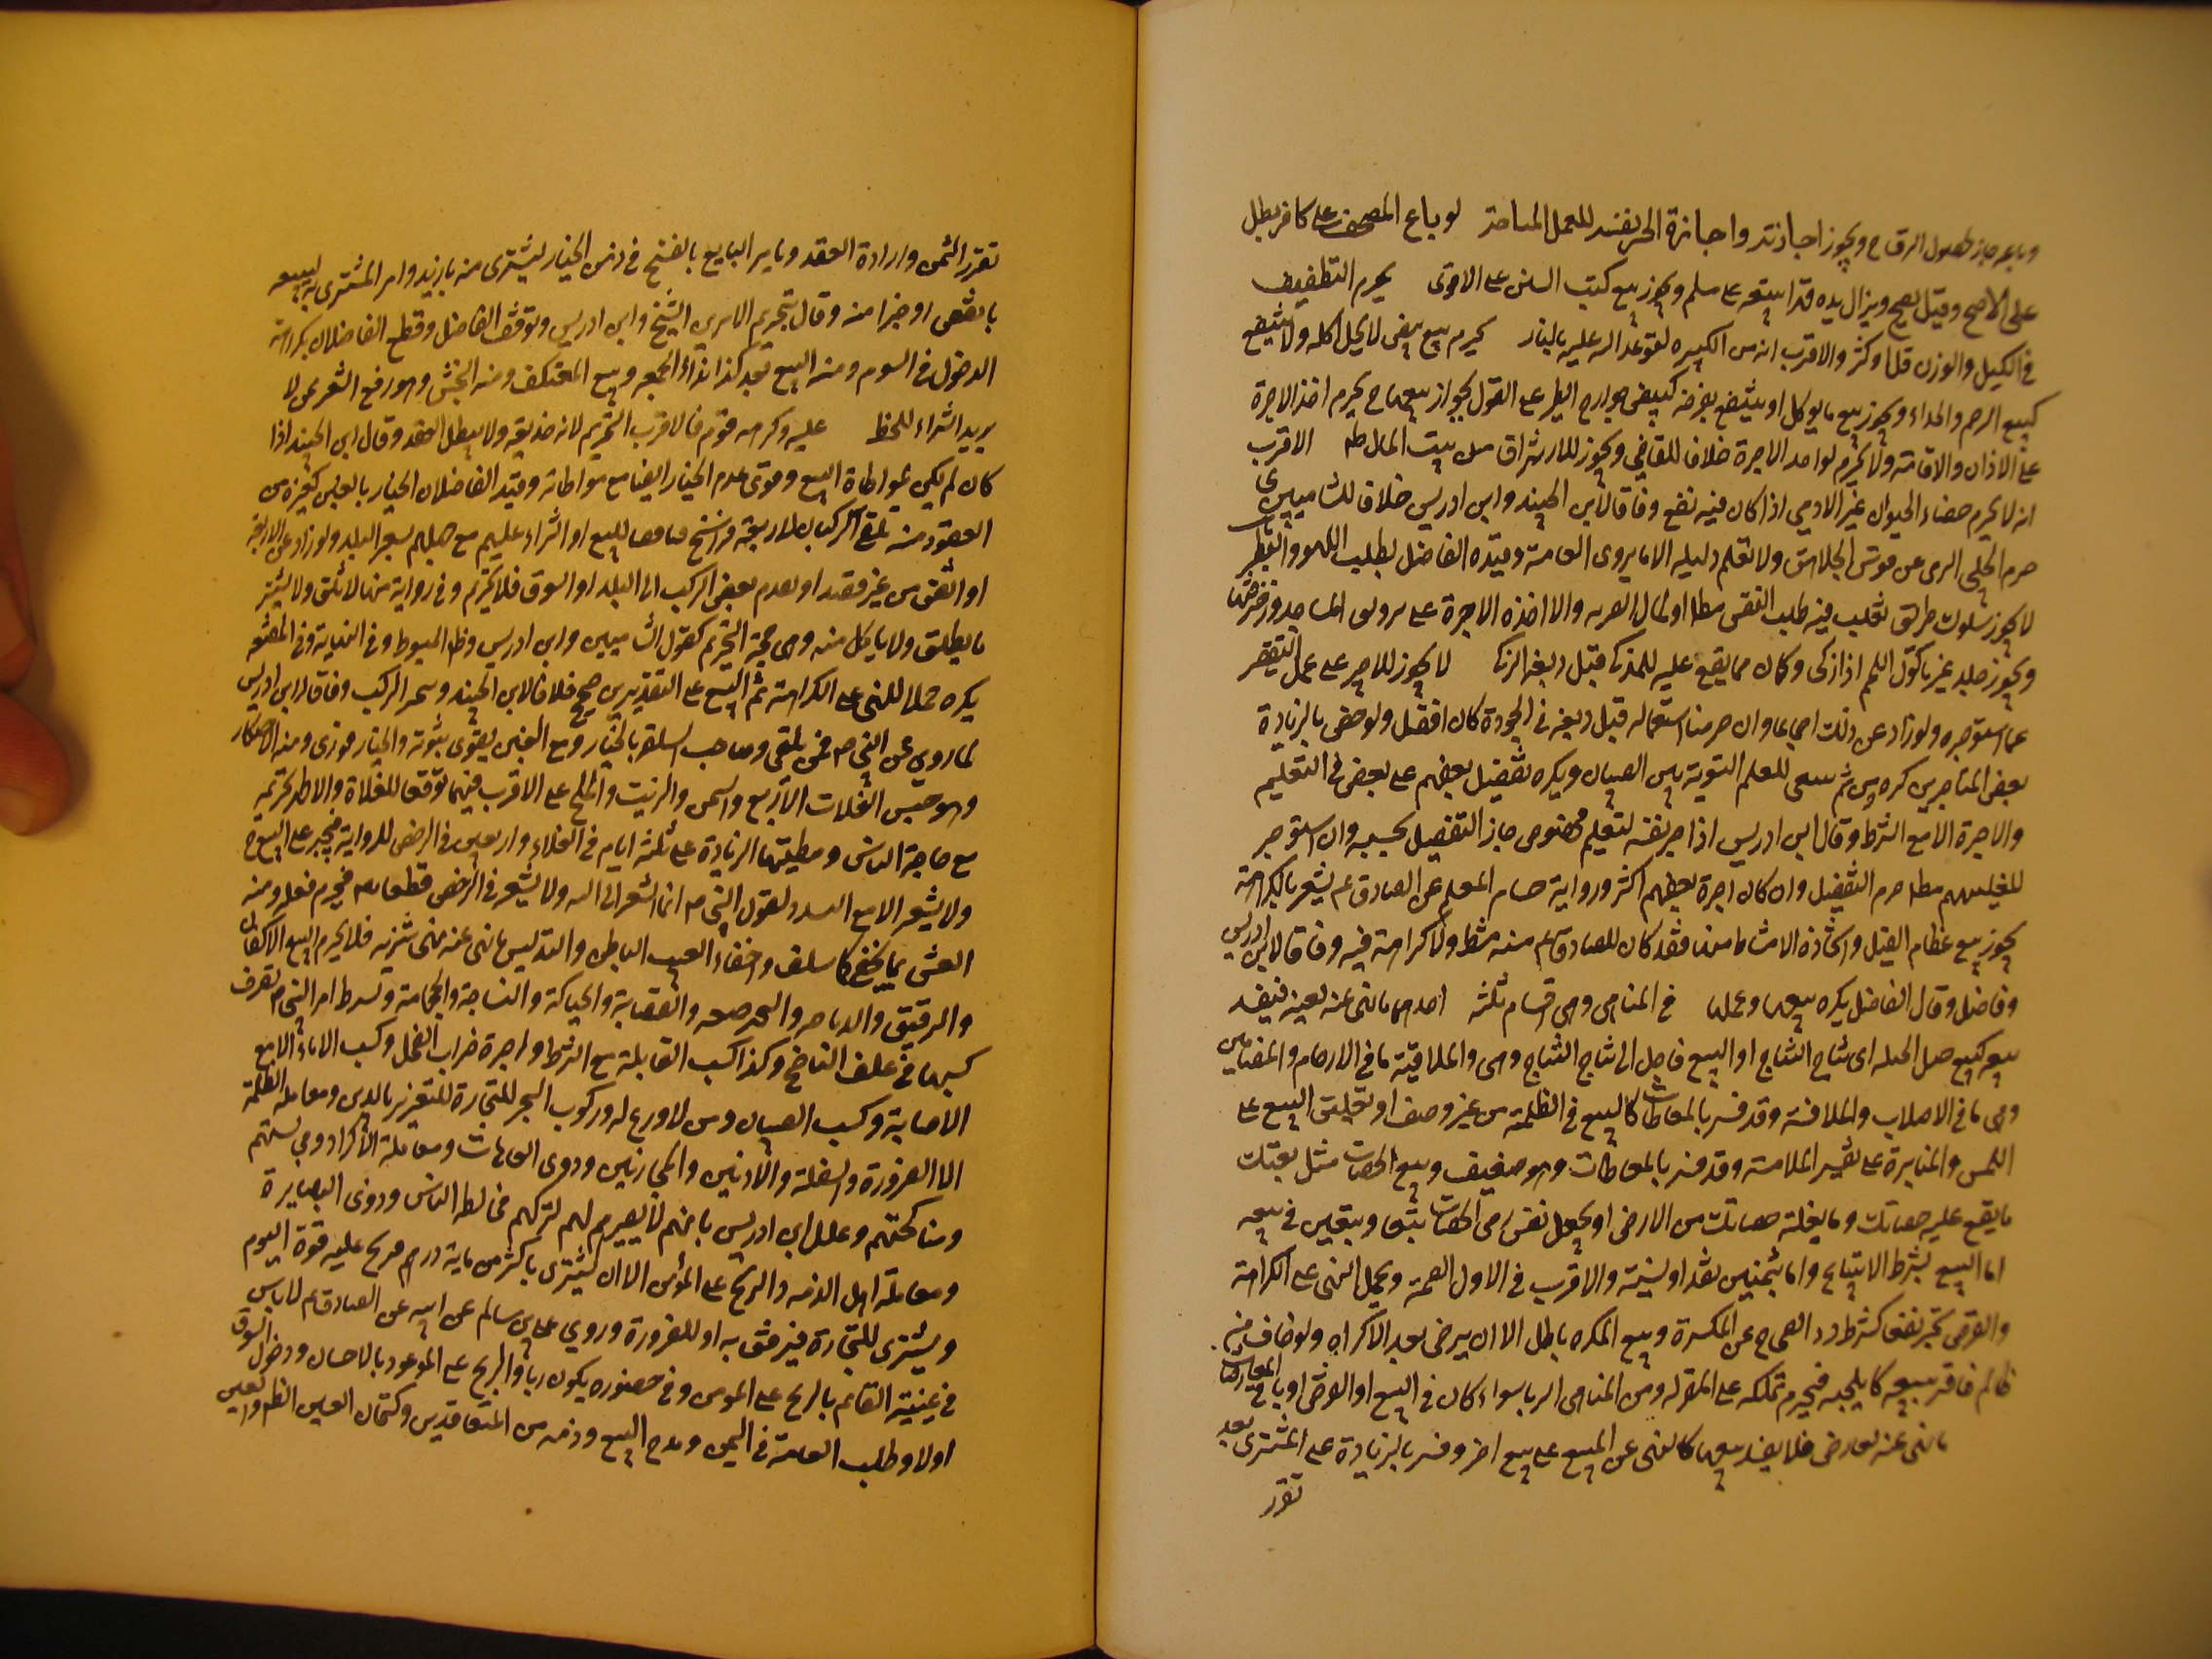 وبايعه جاز لحصول الرقاع ويجوز اجازته واجازة الحر نفسه للعمل المباحة لو باع المصحف على كافر بطل
على الاصح وقيل يصح ويزال يده قد ابيعه على مسلم ويجوز بيع كتب السنن على الاقوى يحرم التطفيف
في الكيل والوزن قل او كثر والاقرب انه من الكبيره لتوعد الله عليه بالنار يحرم بيع بيض لا يحل اكله ولا ينتفع
كبيع الرخم والحداء ويجوز بيع ما يوكل او ينتفع بفرخه كبيض جوارح الطير على القول بجواز بيعها ح يحرم اخذ الاجرة
على الاذان والاقامة ولا تحرم لواحد الاجرة خلافا للقاضي ويجوز للارتزاق من بيت المال الاقرب
انه لا يحرم خصاء الحيوان غير الادمي اذا كان فيه نفع وفاقا لابن الجنيد وابن ادريس خلافا للشاميين
حرم الحلبي الرمي عن قوس الجلاهق ولا نعلم دليله الا ما يروى العامة وقيده الفاضل بطلب اللهو والبطر
لا يجوز سلوك طريق تغلب فيه طلب النقص والا اخذه الاجرة على المساجد وزخرفتها
ويجوز جلد غير ماكول اللحم اذا ذكى وكان مما يقع عليه الذكا قبل دبغه لا يجوز للاجير على عمل التقصر
عما استوجره ولو زاد عن ذلك وان حرمنا استعماله قبل دبغه في الجودة كان افضل ولو خص بالزيادة
بعض المتاجرين كره ينبغي للمعلم التسوية بين الصبيان ويكره تفضيل بعضهم على بعض في التعليم
والاجرة الا مع الشرط وقال ابن ادريس اذا اجر نفسه لتعليم مخصوص جاز التفضيل بحسبه وان استوجر
لتعليمهم مطلقا حرم التفضيل وان كان اجرة بعضهم اكثر ورواية حسان المعلم عن الصادق عم يشعر بالكراهة
يجوز بيع عظام الفيل واتخاذ الامشاط منها فقد كان للصادق عم منه مشط ولا كراهة فيه وفاقا لابن ادريس
وفاضل وقال الفاضل يكره بيعها وعملها في المناهي وهي اقسام ثلثة احدها ما نهى عنه لعينه فيفسد
بيعه كبيع حبل الحبله اى نتاج النتاج او البيع باجل الى نتاج النتاج وهي والملاقيح ما في الارحام والمضامين
وهي ما في الاصلاب والملامسة وقد فسر بالمعاطاة كالبيع في الظلمة من غير وصف او تعليق البيع على
اللمس والمنابذة على تفسير الملامسة وقد فسر بالمعاطات وهو ضعيف وبيع الحصات مثل بعتك
ما يقع عليه حصاتك وما يغلبه حصاتك من الارض او يجعل نفس رمى الحصات بيعا وبيعين في بيعه
اما البيع بشرط الابتياع واما بثمنين نقدا ونسيئة والاقرب في الاول الصحة ويحمل النهي على الكراهة
والقرض بجر نفع كشرط رد الصحاح عن المكسرة وبيع المكره باطل الا ان يرضى بعد الاكراه ولو خاف من
ظالم فاقر ببيعه كما يلجيه فيحرم تملكه على المقر له ومن المناهي الربا سواء كان في البيع او القرض او باقي المعاوضات
ما نهى عنه لعارض فلا يفسد بيعها كالنهى عن البيع على بيع اخر وفسر بالزيادة على المشترى بعد
تقرر
تقرر الثمن وارادة العقد وتامير البايع بالفسخ في زمن الخيار ليشترى منه بازيد وامر المشترى به ليبيعه
بانقص او خيرا منه وقال بتحريم الامرين الشيخ وابن ادريس وتوقف الفاضل وقطع الفاضلان بكراهة
الدخول في السوم ومنه البيع بعد نداء الجمعه وبيع المعتكف ومنه النجش وهو رفع السعر ممن لا
يريد الشراء للحظ عليه وكرهه قوم فالاقرب التحريم لانه خديعه ولا يبطل العقد وقال ابن الجنيد اذا
كان لم يكن بمواطاة البيع وقوى عدم الخيار ايضا مع مواطاته وقيد الفاضلان الخيار بالغبن كغيره من
العقود منه تلقى الركبان لاربعة فراسخ قاصدا للبيع او الشراء عليهم مع جهلهم بسعر البلد ولو زاد عن الاربعة
او اتفق من غير قصد او تقدم بعض الركب الى البلد او السوق فلا تحريم وفي رواية منها لا تلق ولا تشتر
ما يتلق ولا ياكل منه وهي حجة التحريم كقول الشاميين وابن ادريس وظ المبسوط وفي النهاية وفي المقنعه
يكره حملا للنهي على الكراهة ثم البيع على التقديرين صحيح خلافا لابن الجنيد ويتخير الركب وفاقا لابن ادريس
لما روى عن النبي ص فمن تلقى وصاحب السلعة بالخيار ومع الغبن يقوى ثبوته والخيار فورى ومنه الاحتكار
وهو حبس الغلات الاربع والسمن والزيت والملح على الاقرب فيهما توقعا للغلاة والاظهر تحريمه
مع حاجة الناس ومظنتها الزيادة على ثلثة ايام في الغلاء واربعين في الرخص للرواية فيجبر على البيع ح
ولا يسعر الا مع التشدد لقول النبي ص انما السعر الى الله ولا يسعر في الرخص قطعا فيحرم فعله ومنه
الغش بما يخفى كما سلف واخفاء العيب الباطن والتدليس ما نهى عنه نهى تنزيه فلا يحرم البيع الاكفان
والرقيق والذباحه والصحه والقصابة والحياكة والنساجة والحجامة وشرط امر النبي ص بصرف
كسبها في علف الناضح وكذا كسب القابلة مع الشرط واجرة ضراب الفحل وكسب الاماء الا مع
الاصابة وكسب الصبيان ومن لا ورع له وركوب البحر للتجارة للتغرير بالدين ومعاملة الظلمة
الا لضرورة والسفلة والادنين والمحارفين وذوى العاهات ومعاملة الاكراد
ومناكحتهم وعلله ابن ادريس بانهم لا بصيرة لهم لتركهم مخالطه الناس وذوى البصايرة
ومعاملة اهل الذمه والربح على المؤمن الا ان يشترى باكثر من ماية درهم فربح عليه قوة اليوم
ويشترى للتجارة فيرفق به او للضرورة وروى على بن سالم عن ابيه عن الصادق عم لا باس
في غيبة القائم بالربح على المومن وفي حضوره يكون ربا والربح على الموعود بالاحسان ودخول السوق
اولا وطلب الغاية في الثمن ومدح البيع وذمه من المتعاقدين وكتمان العيب الظاهر